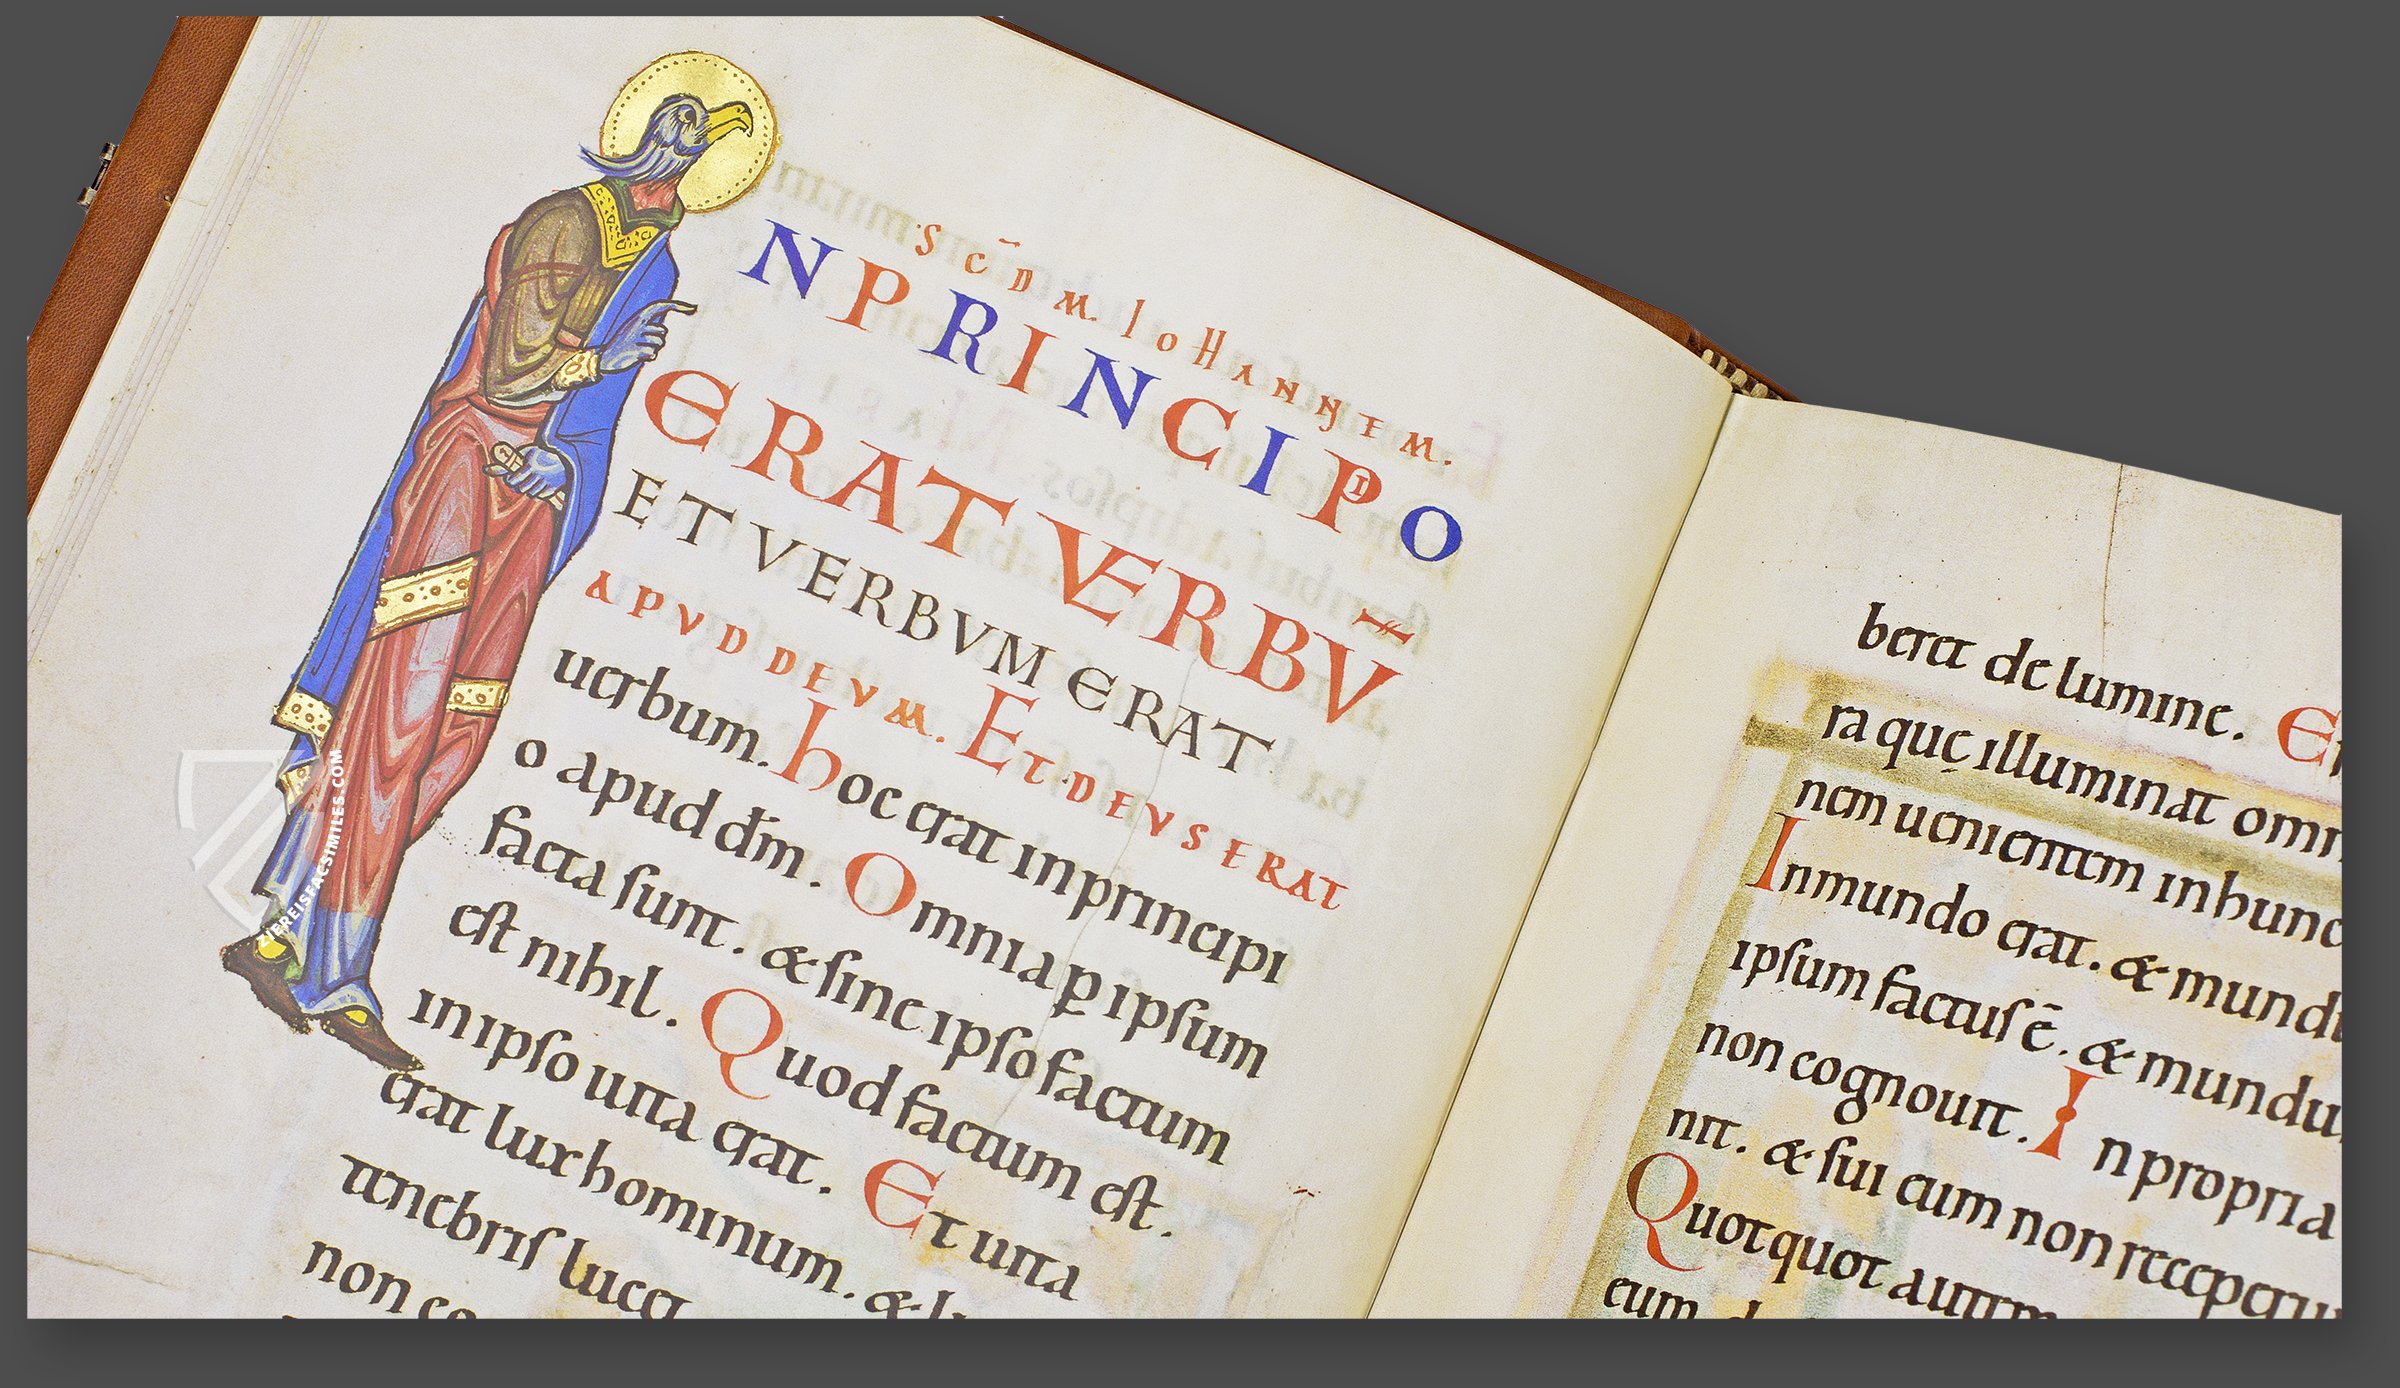 SCD̄M. IOHANNEM.
NPRINCIPIO
ERAT VERBŪ
ET VERBVM ERAT
APVD DEVM. ET DEVS ERAT
uerbum. hoc erat inprincipi
o apud dm̄. Omnia ꝑ ipſum
facta ſunt. & ſine ipſo factum
eſt nihil. Quod factum eſt.
in ipſo uita erat. Et uita
erat lux hominum. & lu
tenebriſ lucet
non co
beret de lumine. E
ra quę illuminat omn
nem uenientem in hunc
In mundo erat. & mund
ipſum factuſ ē. & mundu
non cognouit. In propria
nit. & ſui eum non receperu
Quotquot autem
eum
ZIEREISFACSIMILES.COM